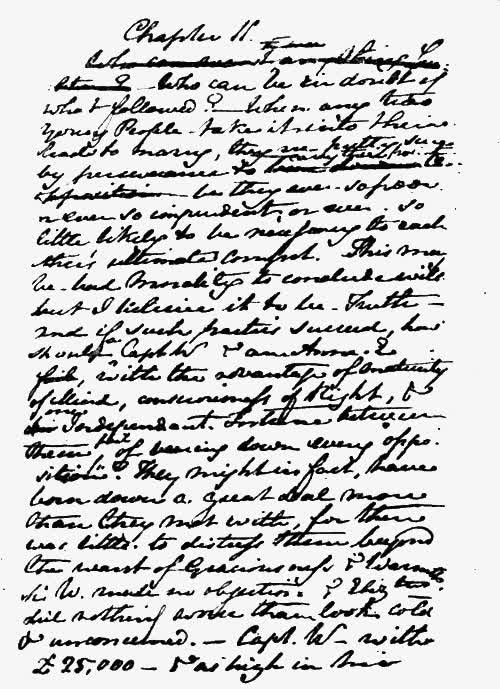 Chapter 11.
Who can be in doubt of
what followed? — When any two
Young People take it into their
heads to marry, they are pretty sure
by perseverance to carry their point
opposition — be they ever so poor
or ever so imprudent, or ever so
little likely to be necessary to each
other's ultimate comfort. This may
be bad Morality to conclude with
but I beleive it to be Truth —
and if such parties succeed, how
should a Capt W— & an Anne E—
fail, with the advantage of Maturity
of Mind, consciousness of Right, &
one Independent Fortune between
them fail of bearing down every oppo-
sition? They might in fact, have
born down a great deal more
than they met with, for there
was little to distress them beyond
the want of Graciousness & Warmth.
Sir W. made no objection. & Eliz:th
did nothing worse than look cold
& unconcerned. — Capt. W— with
£25,000 — & as high in his